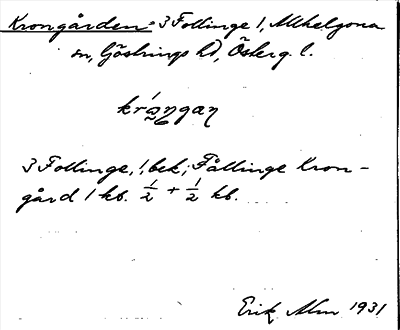 Krongården 3 Follinge 1, Allhelgona
sn, Göstrings hd, Österg. l.
3 Follinge, 1, bek; Fållinge Kron-
gård 1 kb. 1/2 + 1/2 kb.
Erik Alm 1931